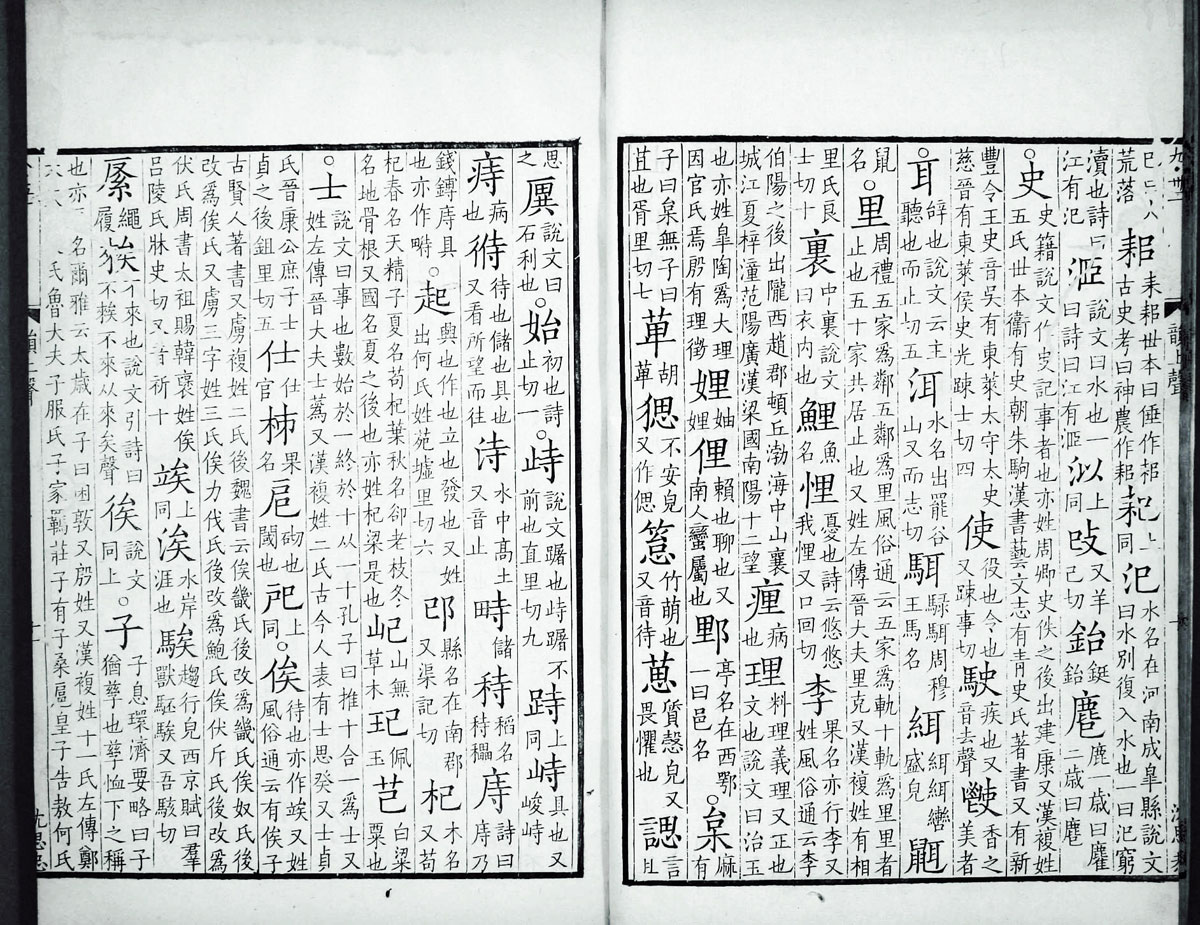 荒落耜耒耜世本曰倕作耜古史考曰神農作耜耛上同汜水名在河南成臯縣說文曰水別復入水也一曰汜窮
瀆也詩曰江有汜洍說文曰水也一曰詩曰江有洍上同又羊己切鈶鋌鈶鹿一歲曰二歲曰
史史籍說文作㕜記事者也亦姓周卿史佚之後出建康又漢複姓五氏世本衛有史朝朱駒漢書藝文志有青史氏著書又有新
豐令王史音吳有東萊太守太史慈晉有東萊侯史光踈士切四使役也令也又踈事切駛疾也又音去聲香之美者
耳辝也說文云主聽也而止切五洱水名出罷谷山又而志切駬騄駬周穆王馬名轡盛皃
鼠名○里周禮五家爲鄰五鄰爲里風俗通云五家爲軌十軌爲里里者止也五十家共居止也又姓左傳晉大夫里克又漢複姓有相
里氏良士切十裏中裏說文曰衣內也鯉魚名悝憂也詩云悠悠我悝又口回切李果名亦行李又姓風俗通云李
伯陽之後出隴西趙郡頓丘渤海中山襄城江夏梓潼范陽廣漢梁國南陽十二望㾖病理料理義理又正也文也說文曰治玉
也亦姓臯陶爲大理因官氏焉殷有理徵娌妯娌俚賴也聊也又南人蠻屬也亭名在西鄂一曰邑名○枲麻有
子曰枲無子曰苴也胥里切七胡不安皃又作偲竹萌也又音待葸質慤皃又畏懼也諰言且
思之說文曰石利也○始初也詩止切一○峙說文躇也峙躇不前也直里切九跱上同峙具也又峻峙
痔病也偫待也儲也具也又看所望而往洔水中高土又音止畤儲畤秲稻名秲穲庤詩曰庤乃
錢鎛庤具也亦作畤○起興也作也立也發也又姓出何氏姓苑墟里切六邔縣名在南郡又渠記切杞木名又苟
杞春名天精子夏名苟杞葉秋名卻老枝冬名地骨根又國名夏之後也亦姓杞梁是也屺山無草木玘佩玉芑白粱粟也
○士說文曰事也數始於一終於十从一十孔子曰推十合一爲士又姓左傳晉大夫士蒍又漢複姓二氏古今人表有士思癸又士貞
氏晉康公庶子士貞之後鉏里切五仕仕官柹果名戺砌也閾也上同○俟待也亦作竢又姓風俗通云有俟子
古賢人著書又虜複姓二氏後魏書云俟畿氏後改爲畿氏俟奴氏後改爲俟氏又虜三字姓三氏俟力伐氏後改爲鮑氏俟伏斤氏後改爲
伏氏周書太祖賜韓褒姓俟呂陵氏牀史切又音祈十竢上同涘水岸涯也騃趨行皃西京賦曰羣獸駓騃又吾駭切
繩履不來也說文引詩曰不不來从來矣聲說文同上○子子息環濟要略曰子猶孳也孳恤下之稱
也亦名爾雅云太歲在子曰困敦又殷姓又漢複姓十一氏左傳鄭氏魯大夫子服氏子家羈莊子有子桑扈皇子告敖何氏